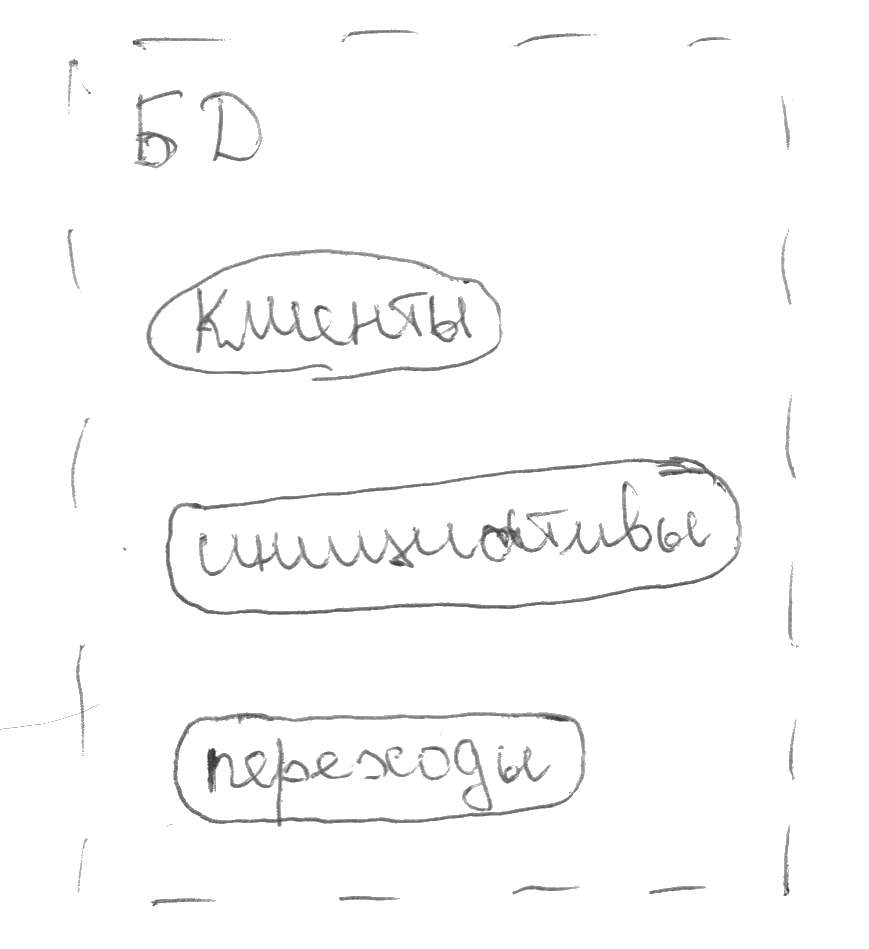 БД
Клиенты
инициативы
переходы